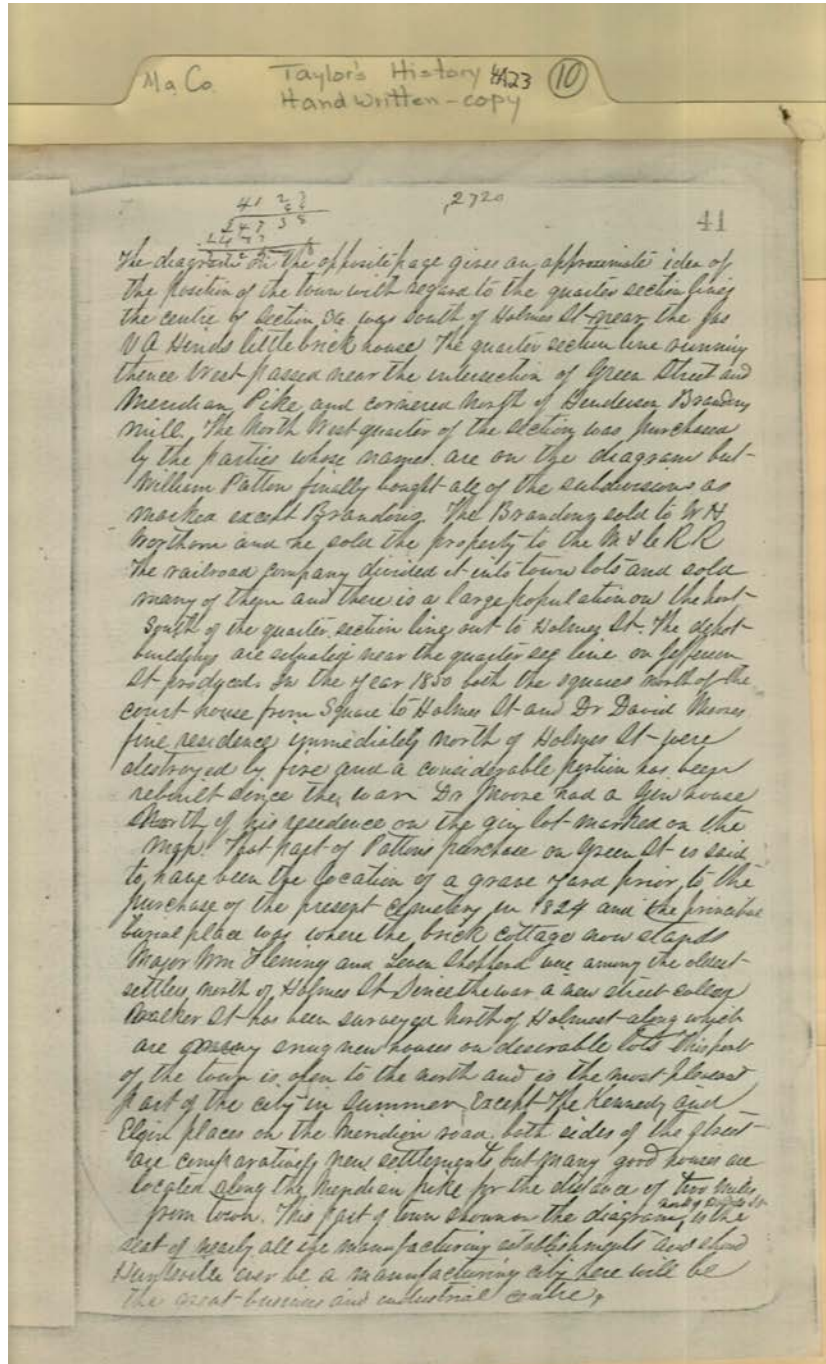 Ma. Co. Taylor's History 4A23 10
Handwritten - copy
2720
41
The diagram on the opposite page gives an approximate idea of
the position of the town with regard to the quarter section lines
the centre of Section 36 was south of Holmes St near the
V A Hinds little brick house The quarter section line running
thence West passed near the intersection of Green Street and
Meridian Pike and cornered North of Henderson Brandons
mill. The North West quarter of the section was purchased
by the parties whose names are on the diagram but
William Patton finally bought all of the subdivisions as
marked except Brandons. The Brandons sold to W H
Northorn and he sold the property to the M & C R R
The railroad company divided it into town lots and sold
many of them and there is a large population on the part
South of the quarter section line out to Holmes St. The depot
buildings are situated near the quarter sec line on Jefferson
St produced. In the year 1850 both the squares north of the
court house from Square to Holmes St and Dr David Moores
fine residence immediately north of Holmes St were
destroyed by fire and a considerable portion has been
rebuilt since the war Dr Moore had a Gin house
North of his residence on the gin lot marked on the
map. That part of Pattons purchase on Green St is said
to have been the location of a grave yard prior to the
purchase of the present cemetery in 1824 and the principal
burial place was where the brick cottage now stands
Major Wm Fleming and Leven Shepperd were among the oldest
settlers north of Holmes St Since the war a new street called
Walker St has been surveyed North of Holmes st along which
are many snug new houses on desirable lots This part
of the town is open to the north and is the most pleasant
part of the city in summer. Except the Kennedy and
Elgin places on the Meridian road, both sides of the street
are comparatively new settlements but many good houses are
located along the Meridian pike for the distance of two miles
from town. This part of town shown on the diagram is the
seat of nearly all the manufacturing establishments and should
Huntsville ever be a manufacturing city here will be
the great business and industrial centre,